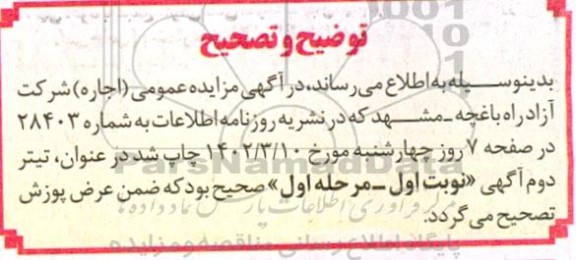 توضیح و تصحیح
بدینوسیله به اطلاع می‌رساند، در آگهی مزایده عمومی (اجاره) شرکت
آزادراه باغچه ـ مشهد که در نشریه روزنامه اطلاعات به شماره ۲۸۴۰۳
در صفحه ۷ روز چهارشنبه مورخ ۱۴۰۲/۳/۱۰ چاپ شد در عنوان، تیتر
دوم آگهی «نوبت اول ـ مرحله اول» صحیح بود که ضمن عرض پوزش
تصحیح می‌گردد.
ParsNamadData
مرکز فرآوری اطلاعات پارس نماد داده ها
پایگاه اطلاع رسانی مناقصه و مزایده